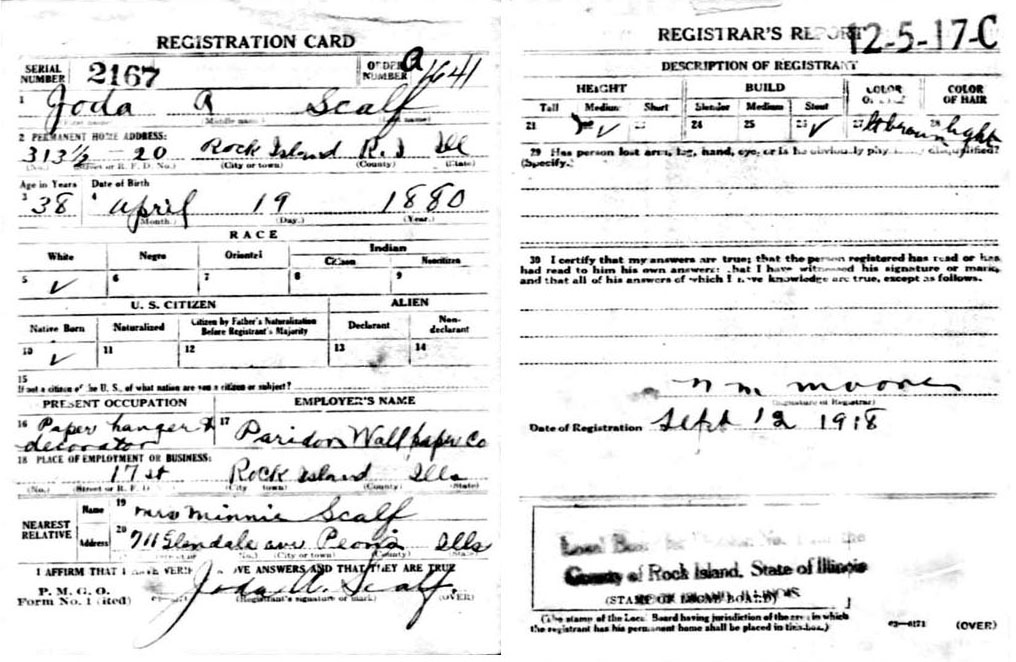 REGISTRATION CARD
SERIAL NUMBER 2167 ORDER NUMBER A 1641
1 Joda A Scalf
2 PERMANENT HOME ADDRESS:
313½ - 20 Rock Island R.I Ill
(No.) (Street or R. F. D. No.) (City or town) (County) (State)
Age in Years Date of Birth
3 38 4 April 19 1880
(Month.) (Day.) (Year.)
RACE
White Negro Oriental Indian
Citizen Noncitizen
5 ✓ 6 7 8 9
U. S. CITIZEN ALIEN
Native Born Naturalized Citizen by Father's Naturalization Before Registrant's Majority Declarant Non-declarant
10 ✓ 11 12 13 14
15
If not a citizen of the U. S., of what nation are you a citizen or subject?
PRESENT OCCUPATION EMPLOYER'S NAME
16 Paper hanger & decorator 17 Paridon Wall paper Co
18 PLACE OF EMPLOYMENT OR BUSINESS:
17 st Rock Island Ills
(No.) (Street or R. F. D.) (City town) (County) (State)
NEAREST RELATIVE Name 19 Mrs Minnie Scalf
Address 20 711 Glendale ave Peoria Ills
(City or town) (County) (State)
I AFFIRM THAT I HAVE VERIFIED ABOVE ANSWERS AND THAT THEY ARE TRUE
P. M. G. O.
Form No. 1 Joda A. Scalf.
(Registrant's signature or mark) (OVER)
REGISTRAR'S REPORT 12-5-17-C
DESCRIPTION OF REGISTRANT
HEIGHT BUILD COLOR OF EYES COLOR OF HAIR
Tall Medium Short Slender Medium Stout
21 ✓ 23 24 25 26 ✓ 27 lt brown 28 light
29 Has person lost arm, leg, hand, eye, or is he obviously physically disqualified?
(Specify.)
30 I certify that my answers are true; that the person registered has read or has
had read to him his own answers; that I have witnessed his signature or mark,
and that all of his answers of which I have knowledge are true, except as follows.
(Signature of Registrar)
Date of Registration Sept 12 1918
Local Board for Division No. 1 the
County of Rock Island, State of Illinois
(STAMP OF LOCAL BOARD)
(The stamp of the Local Board having jurisdiction of the area in which
the registrant has his permanent home shall be placed in this box.)
03-6171 (OVER)